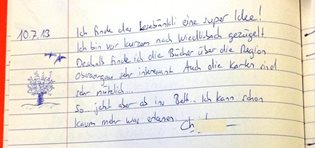 10.7.13
Ich finde das Lesebänkli eine super Idee!
Ich bin vor kurzem nach Wiedlisbach gezügelt.
Deshalb finde ich die Bücher über die Region
Oberaargau sehr interessant. Auch die Karten sind
sehr nützlich...
So... jetzt aber ab ins Bett.. Ich kann schon
kaum mehr was erkennen.